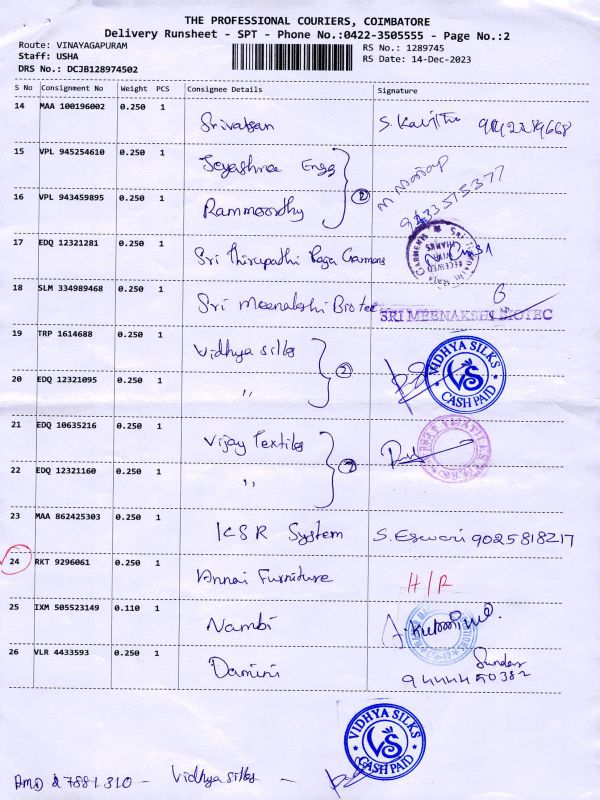 THE PROFESSIONAL COURIERS, COIMBATORE
Delivery Runsheet - SPT - Phone No.:0422-3505555 - Page No.:2
Route: VINAYAGAPURAM
RS No.: 1289745
Staff: USHA
RS Date: 14-Dec-2023
DRS No.: DCJB128974502
S No Consignment No Weight PCS Consignee Details Signature
14 MAA 100196002 0.250 1 Srivatsan S. Kavitha
15 VPL 945254610 0.250 1 Jeyashree Engg
16 VPL 943459895 0.250 1 Rammoorthy 2
17 EDQ 12321281 0.250 1 Sri Thirupathi Raja Garments
18 SLM 334989468 0.250 1 Sri Meenakshi Biotec SRI MEENAKSHI BIOTEC
19 TRP 1614688 0.250 1 Vidhya silks 2 VIDHYA SILKS VS CASH PAID
20 EDQ 12321095 0.250 1 ,,
21 EDQ 10635216 0.250 1 Vijay Textiles 2
22 EDQ 12321160 0.250 1 ,,
23 MAA 862425303 0.250 1 KSR System S. Eswari 9025818217
24 RKT 9296061 0.250 1 Annai Furniture H/R
25 IXM 505523149 0.110 1 Nambi
26 VLR 4433593 0.250 1 Damini Sundar
9444450382
VIDHYA SILKS VS CASH PAID
27881310 - Vidhya silks -